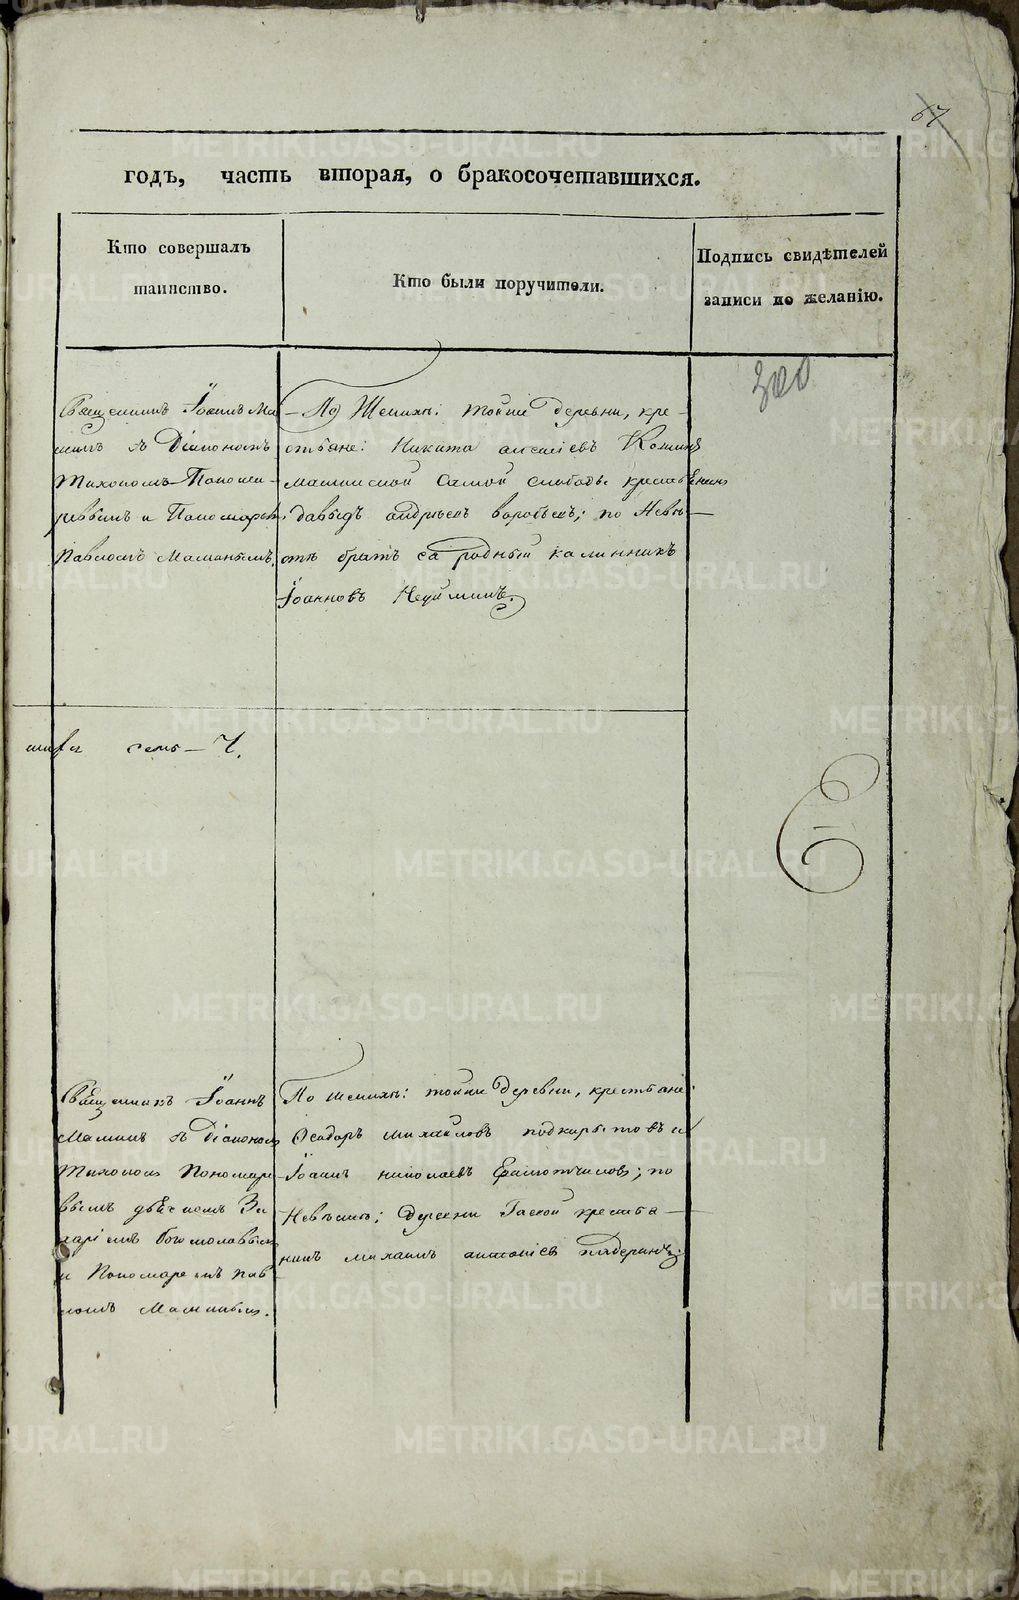 67
годъ, часть вторая, о бракосочетавшихся.
Кто совершалъ
таинство.
Кто были поручители.
Подпись свидѣтелей
записи по желанію.
300
Священникъ Іоаннъ Ма
минъ съ Діакономъ
Тихономъ Пономa
ревымъ и Пономаремъ
Павломъ Маминымъ.
По Женихѣ: тойже деревни, кре-
стьяне: Никита
самой слободы крестьянинъ
давыдъ андреевъ воробьевъ; по Невѣ-
стѣ братъ ея родный калинникъ
Іоанновъ
семь - 7.
Священникъ Іоаннъ
Маминъ съ Діакономъ
Тихономъ Пономаре
вымъ дьячкомъ За
харіемъ богомоловымъ
и Пономаремъ пав
ломъ Маминымъ.
По женихѣ: тойже деревни, крестьяне
Ѳеодоръ михайловъ подкорытовъ и
Іоаннъ николаевъ; по
Невѣстѣ; деревни крестья-
нинъ михаилъ
METRIKI.GASO-URAL.RU